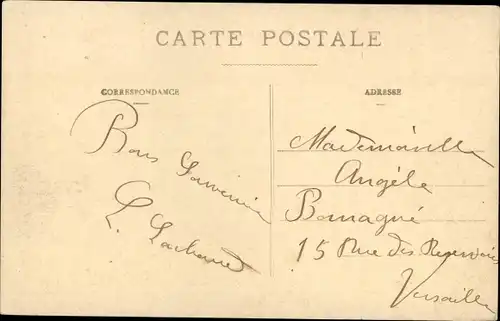 CARTE POSTALE
CORRESPONDANCE
ADRESSE
Bons Souvenirs
L. Lachaud
Mademoiselle
Angèle
Bomagné
15 Rue des Reservoirs
Versailles